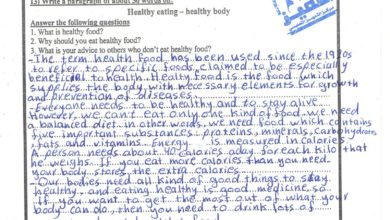 13) Write a paragraph of about 50 words on:
Healthy eating – healthy body
Answer the following questions
1. What is healthy food?
2. Why should you eat healthy food?
3. What is your advice to others who don't eat healthy food?
- The term health food has been used since the 1920s
to refer to specific foods claimed to be especially
beneficial to health. Healty food is the food which
supplies the body with necessary elements for growth
and prevention of diseases.
- Everyone needs to be healthy and to stay alive.
However, we can't eat only one kind of food. we need
a balanced diet. in other words, we need food which contains
five important substances: proteins, minerals, carbohydrates,
fats and vitamins. Energy is measured in calories.
A person needs about 40 calories a day for each kilo that
he weighs. If you eat more calories than you need,
your body stores the extra calories.
- Our bodies need all kind of good things to stay
healthy, and eating healthy is good medicine. so
if you want to get the most out of what your
body can do, then you need to drink lots of